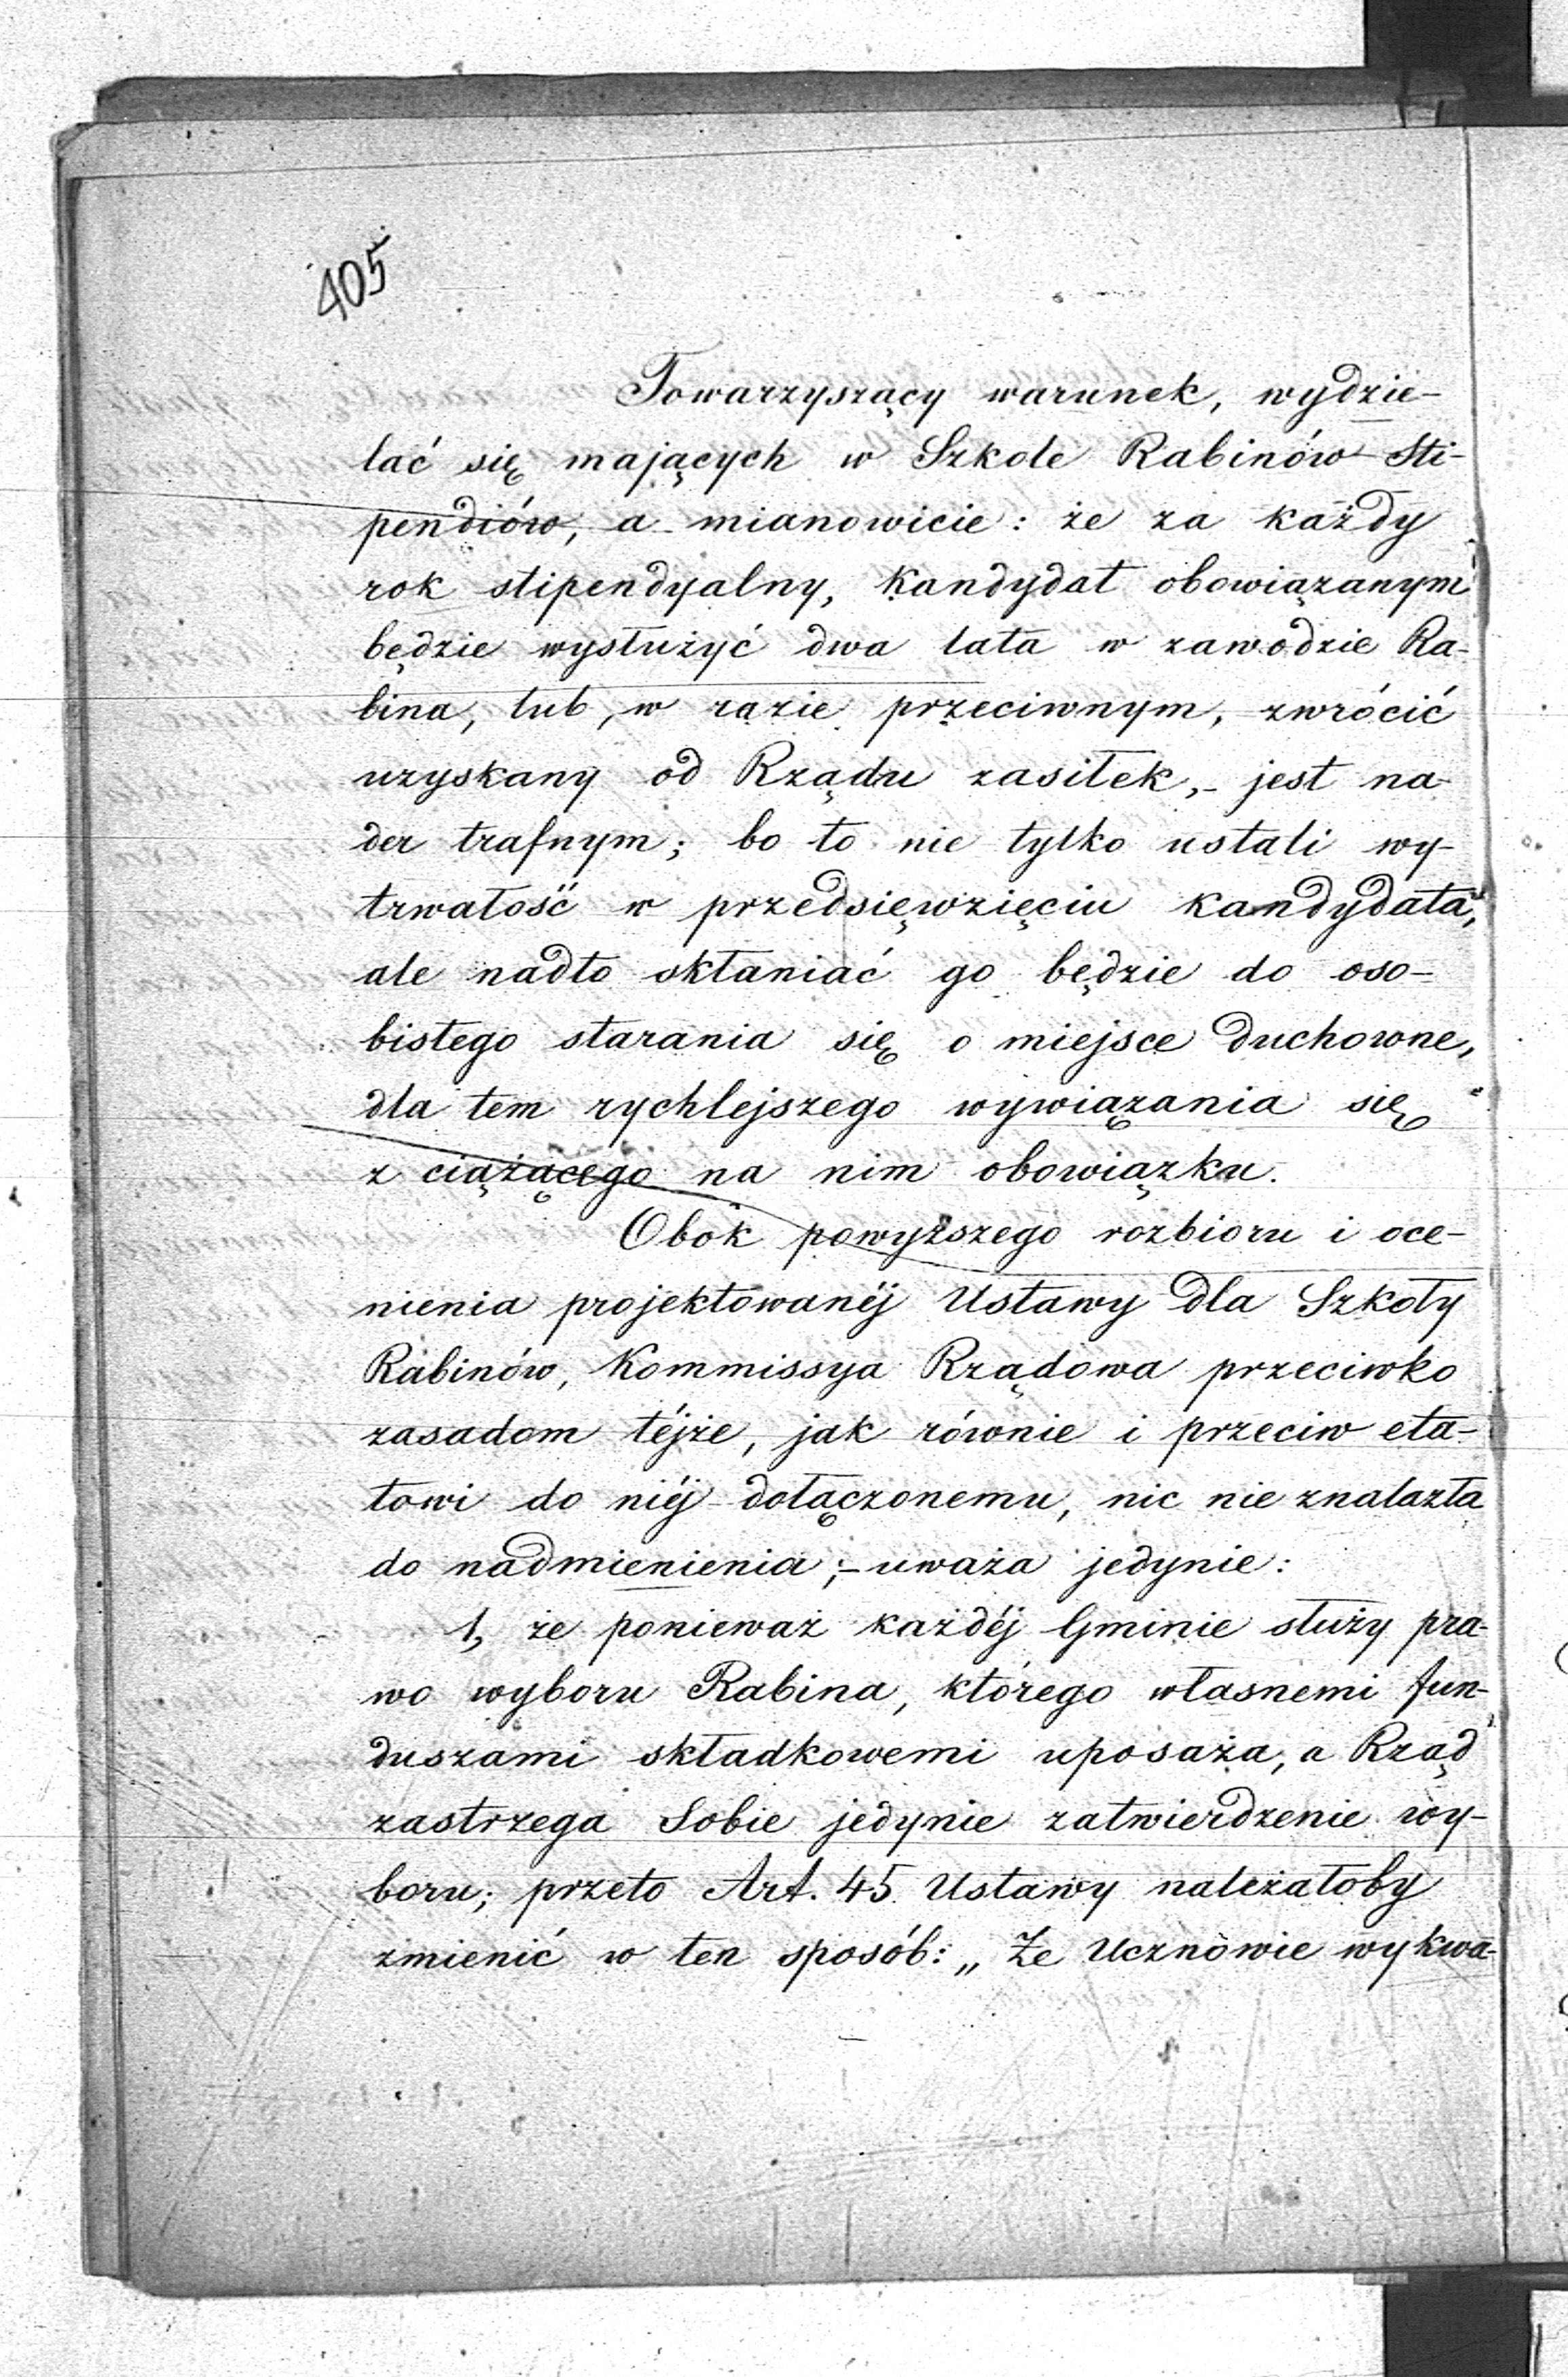 405
Towarzyszący warunek, wydzie-
lać się mających w Szkole Rabinów Sti-
pendiów, a mianowicie: że za każdy
rok stipendyalny, Kandydat obowiązanym
będzie wysłużyć dwa lata w zawodzie Ra-
bina, lub, w razie przeciwnym, zwrócić
uzyskany od Rządu zasiłek,- jest na-
der trafnym; bo to nie tylko ustali wy-
trwałość w przedsięwzięciu Kandydata,
ale nadto skłaniać go będzie do oso-
bistego starania się o miejsce duchowne,
dla tem rychlejszego wywiązania się
z ciążącego na nim obowiązku.
Obok powyższego rozbioru i oce-
nienia projektowanéj Ustawy dla Szkoły
Rabinów, Kommissya Rządowa przeciwko
zasadom téjże, jak równie i przeciw eta-
towi do niéj dołączonemu, nic nie znalazła
do nadmienienia;- uważa jedynie:
1, że ponieważ każdéj Gminie służy pra-
wo wyboru Rabina, którego własnemi fun-
duszami składkowemi uposaża, a Rząd
zastrzega Sobie jedynie zatwierdzenie wy-
boru; przeto Art. 45 Ustawy należałoby
zmienić w ten sposób: „Że Ucznowie wykwa-